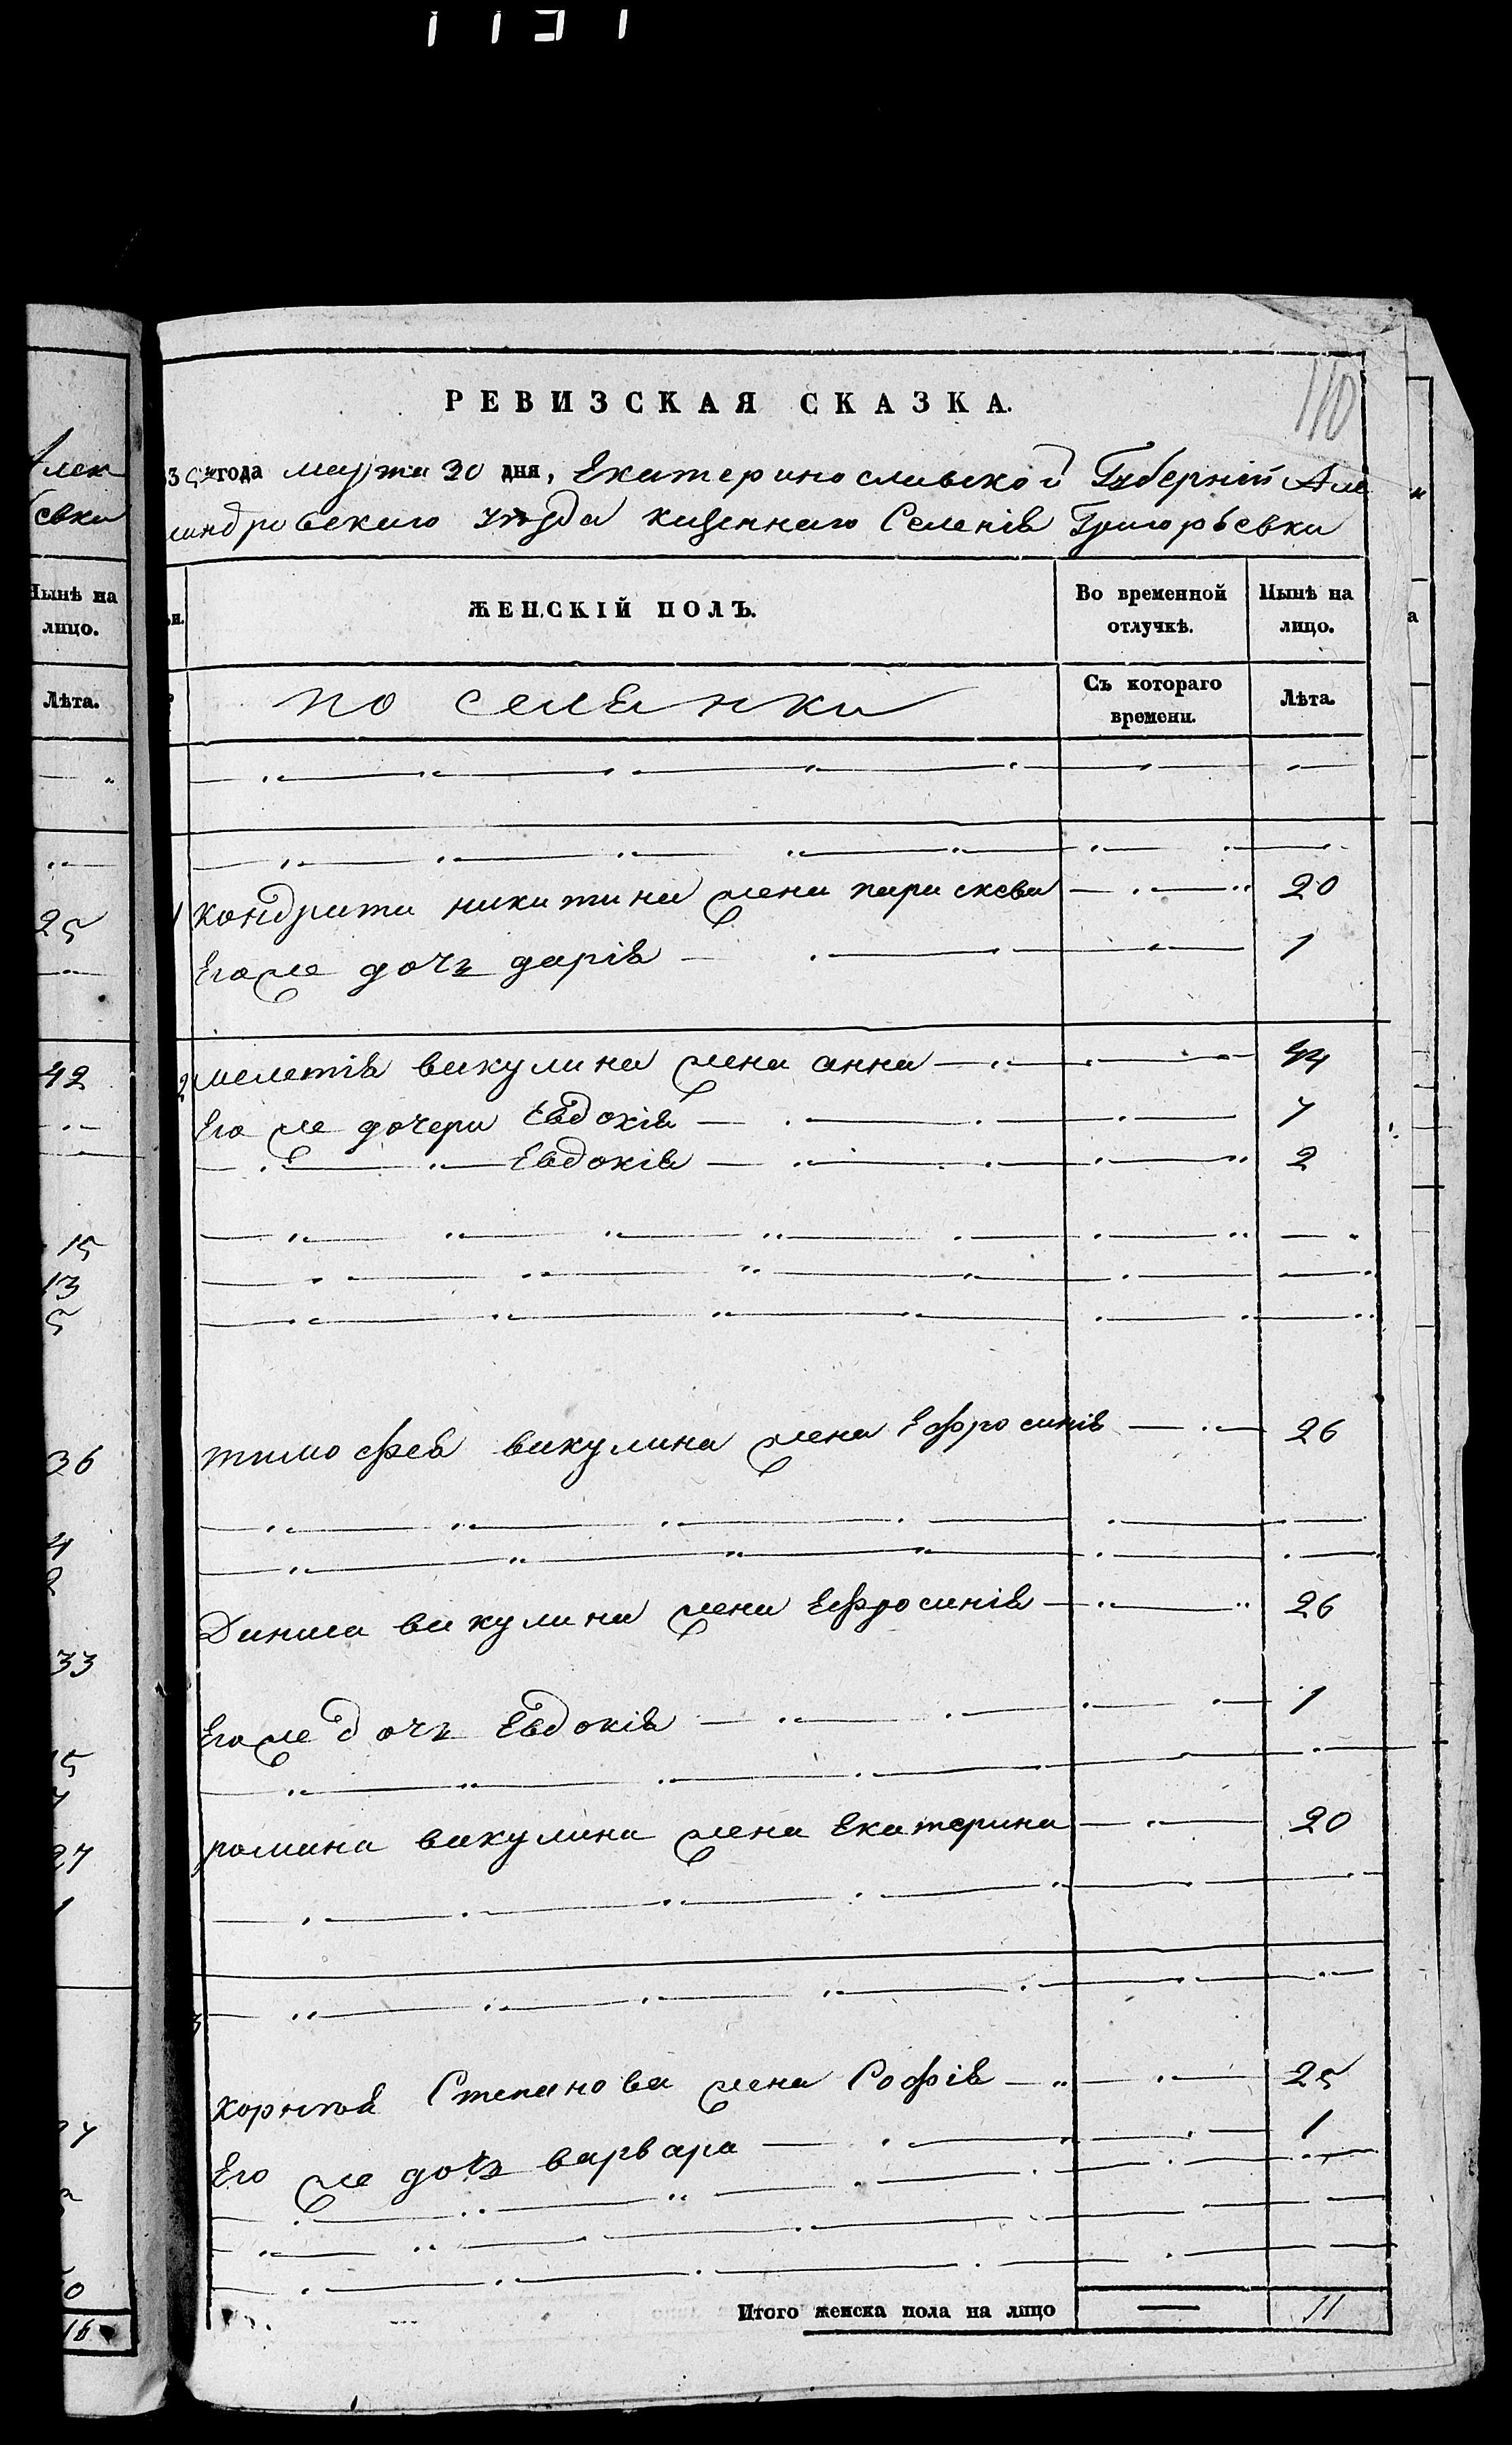 110
РЕВИЗСКАЯ СКАЗКА.
года марта 30 дня, Екатеринославской Губерніи Алек
сандровскаго уѣзда казеннаго Селенія Григорьевки
ЖЕНСКІЙ ПОЛЪ.
Во временной отлучкѣ.
Нынѣ на лицо.
поселянки
Съ котораго времени.
Лѣта.
1 кондрата никитина жена параскева 20
Его же дочь дарія 1
2 мелетія викулина жена анна 44
Его же дочери Евдокія 7
Евдокія 2
тимофея викулина жена Ефросинія 26
Даниса викулина жена Ефросинія 26
Его же дочь Евдокія 1
романа викулина жена Екатерина 20
3
корнѣя Степанова жена Софія 25
Его же дочь варвара 1
Итого женска пола на лицо — 11
Алек
евки
Нынѣ на
лицо.
Лѣта.
25
42
15
13
5
36
33
27
1
16